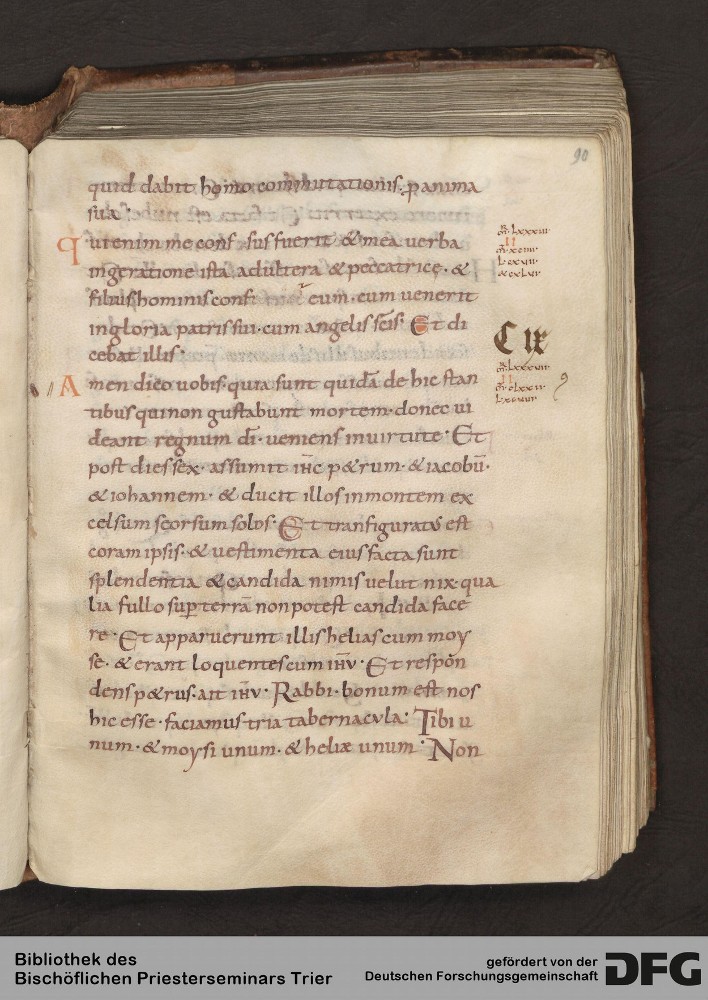 90
quid dabit homo commutationis· p anima
sua·
Qui enim me conf sus fuerit & mea uerba
ingeratione ista adultera & peccatrice· &
filiushominisconf eum· cum uenerit
ingloria patrissui· cum angelis scis· Et di
cebat illis·
Amen dico uobis· quia sunt quidā de hic stan
tibusquinon gustabunt mortem· donec ui
deant regnum dī· ueniens inuirtute· Et
post diessex· assumit ihc p&rum· & iacobū·
& iohannem· & ducit illosinmontem ex
celsum seorsum solos· Et tranfiguratus est
coram ipsis· & uestimenta eiusfactasunt
splendentia & candida nimisuelut nix· qua
lia fullo sup terrā nonpotest candida face
re· Et apparuerunt illisheliascum moy
se· & erant loquentescum ihu· Et respon
densp&rus· ait ihu· Rabbi· bonum est nos
hic esse· faciamustria tabernacula· Tibi u
num· & moysi unum· & heliæ unum· Non
C IX
Bibliothek des
Bischöflichen Priesterseminars Trier
gefördert von der
Deutschen Forschungsgemeinschaft
DFG